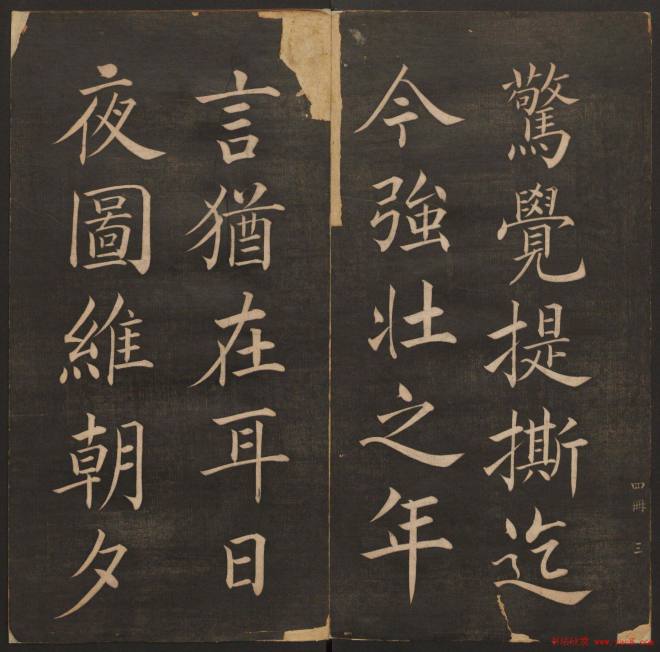 驚覺提撕迄
今強壯之年
言猶在耳日
夜圖維朝夕
四冊 三